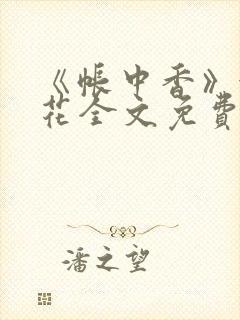 《帐中香》
花全文免費
潘之望